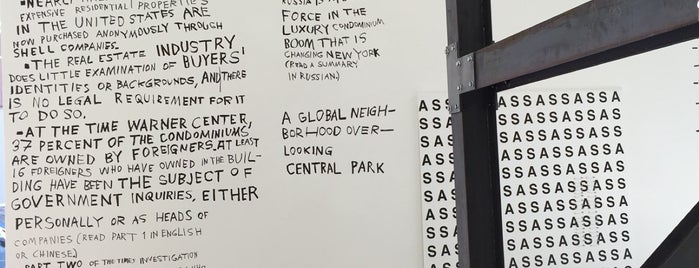 •NEARLY
EXPENSIVE RESIDENTIAL PROPERTIES
IN THE UNITED STATES ARE
NOW PURCHASED ANONYMOUSLY THROUGH
SHELL COMPANIES.
•THE REAL ESTATE INDUSTRY
DOES LITTLE EXAMINATION OF BUYERS'
IDENTITIES OR BACKGROUNDS, AND THERE
IS NO LEGAL REQUIREMENT FOR IT
TO DO SO.
•AT THE TIME WARNER CENTER,
37 PERCENT OF THE CONDOMINIUMS
ARE OWNED BY FOREIGNERS. AT LEAST
16 FOREIGNERS WHO HAVE OWNED IN THE BUIL-
DING HAVE BEEN THE SUBJECT OF
GOVERNMENT INQUIRIES, EITHER
PERSONALLY OR AS HEADS OF
COMPANIES (READ PART 1 IN ENGLISH
OR CHINESE)
PART TWO OF THE TIMES INVESTIGATION
RUSSIA IS
FORCE IN THE
LUXURY CONDOMINIUM
BOOM THAT IS
CHANGING NEW YORK
(READ A SUMMARY
IN RUSSIAN.)
A GLOBAL NEIGH-
BORHOOD OVER-
LOOKING
CENTRAL PARK
ASSA
SSAS
SASS
ASSA
SSAS
SASS
ASSA
SSAS
SASS
ASSASSASSA
SSASSASSAS
SASSASSASS
ASSASSASSA
SSASSASSAS
SASSASSASS
ASSASSASSA
SSASSASSAS
SASSASSASS